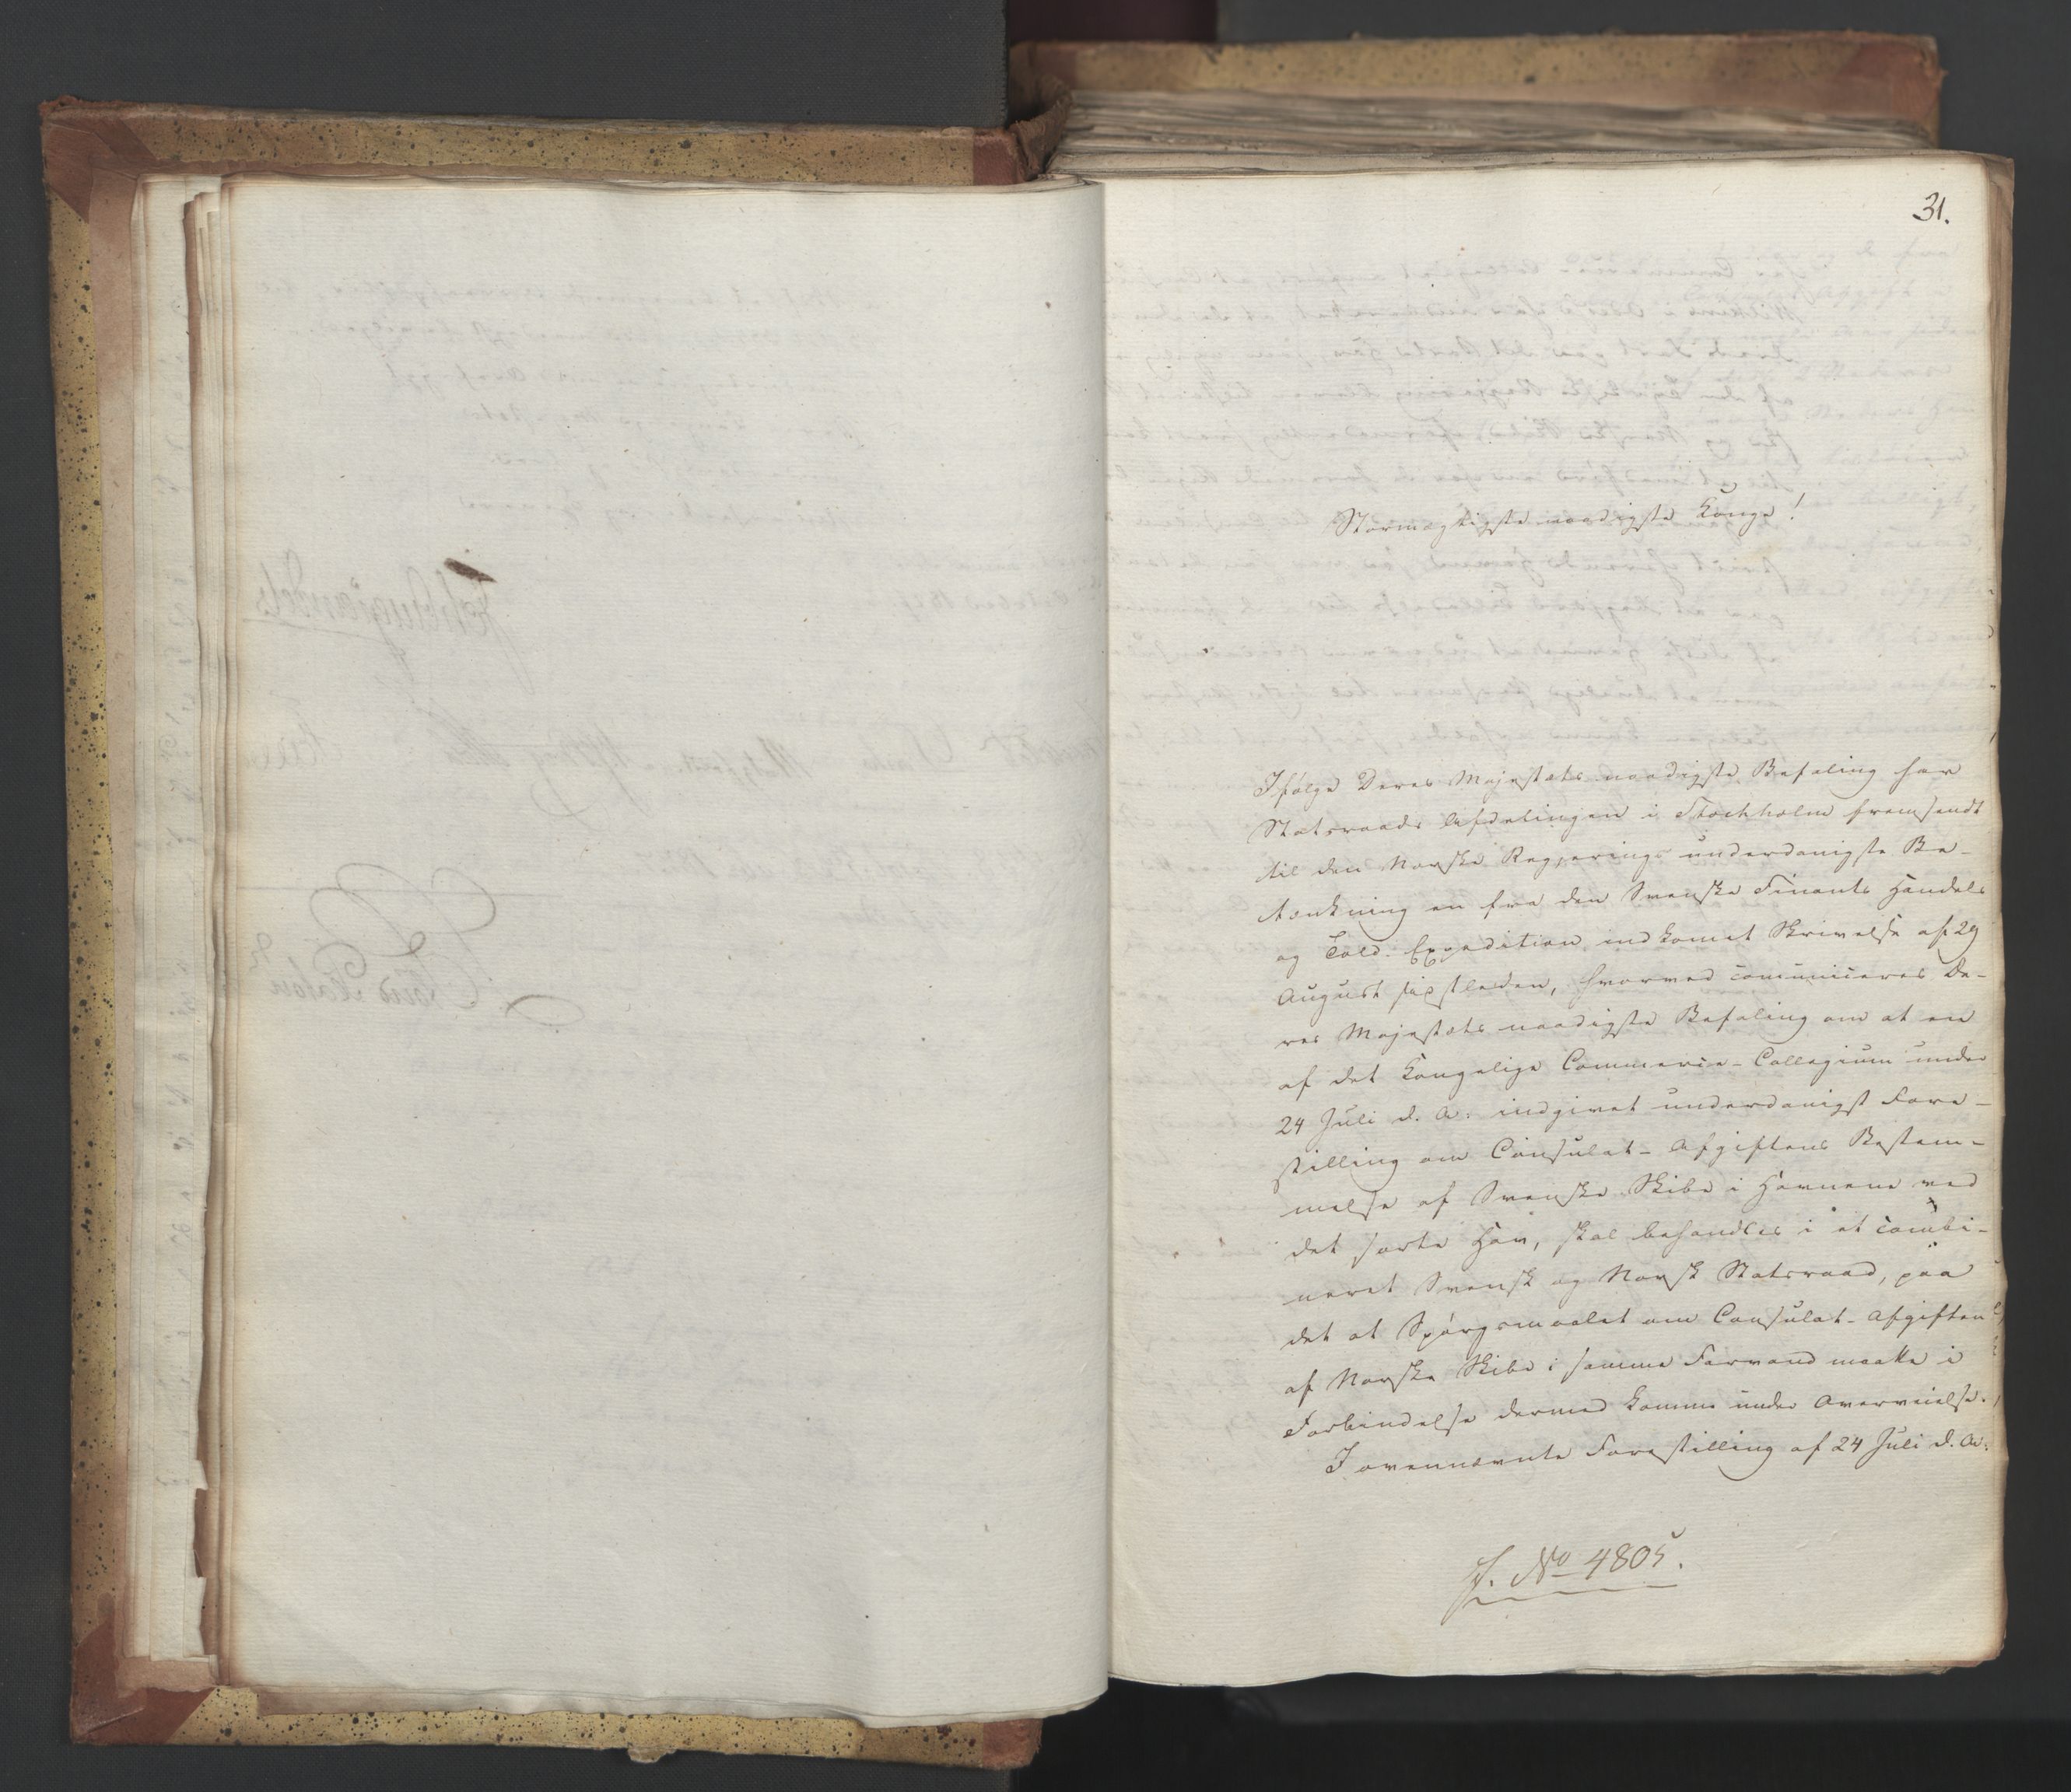 31.
Stormægtigste naadigste Konge!
Ifølge Deres Majestæts naadigste Befaling har
Statsraads Afdelingen i Stockholm fremsendt
til den Norske Regjerings underdanigste Be-
tænkning en fra den Svenske Finants Handels
og Told. Expedition indkomet Skrivelse af 29
August sidstleden, hvorved comuniceres De-
res Majestæts naadigste Befaling om at en
af det Kongelige Commerce-Collegium under
24 Juli d. A: indgivet underdanigst Fore-
stilling om Consulat-Afgiftens Bestem-
melse af Svenske Skibe i Havnene ved
det sorte Hav, skal behandles i et combi-
neret Svensk og Norsk Statsraad, paa
det at Spørgsmaalet om Consulat-Afgiften
af Norske Skibe i samme Farvand maatte i
Forbindelse dermed komme under Overveielse.
I ovennævnte Forestilling af 24 Juli d. A:
J. No 4805.